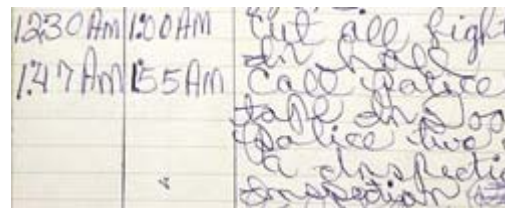 12:30 AM 1:00 AM Cut all light
in hall
1:47 AM 1:55 AM Call police
police two
a inspecti
inspection